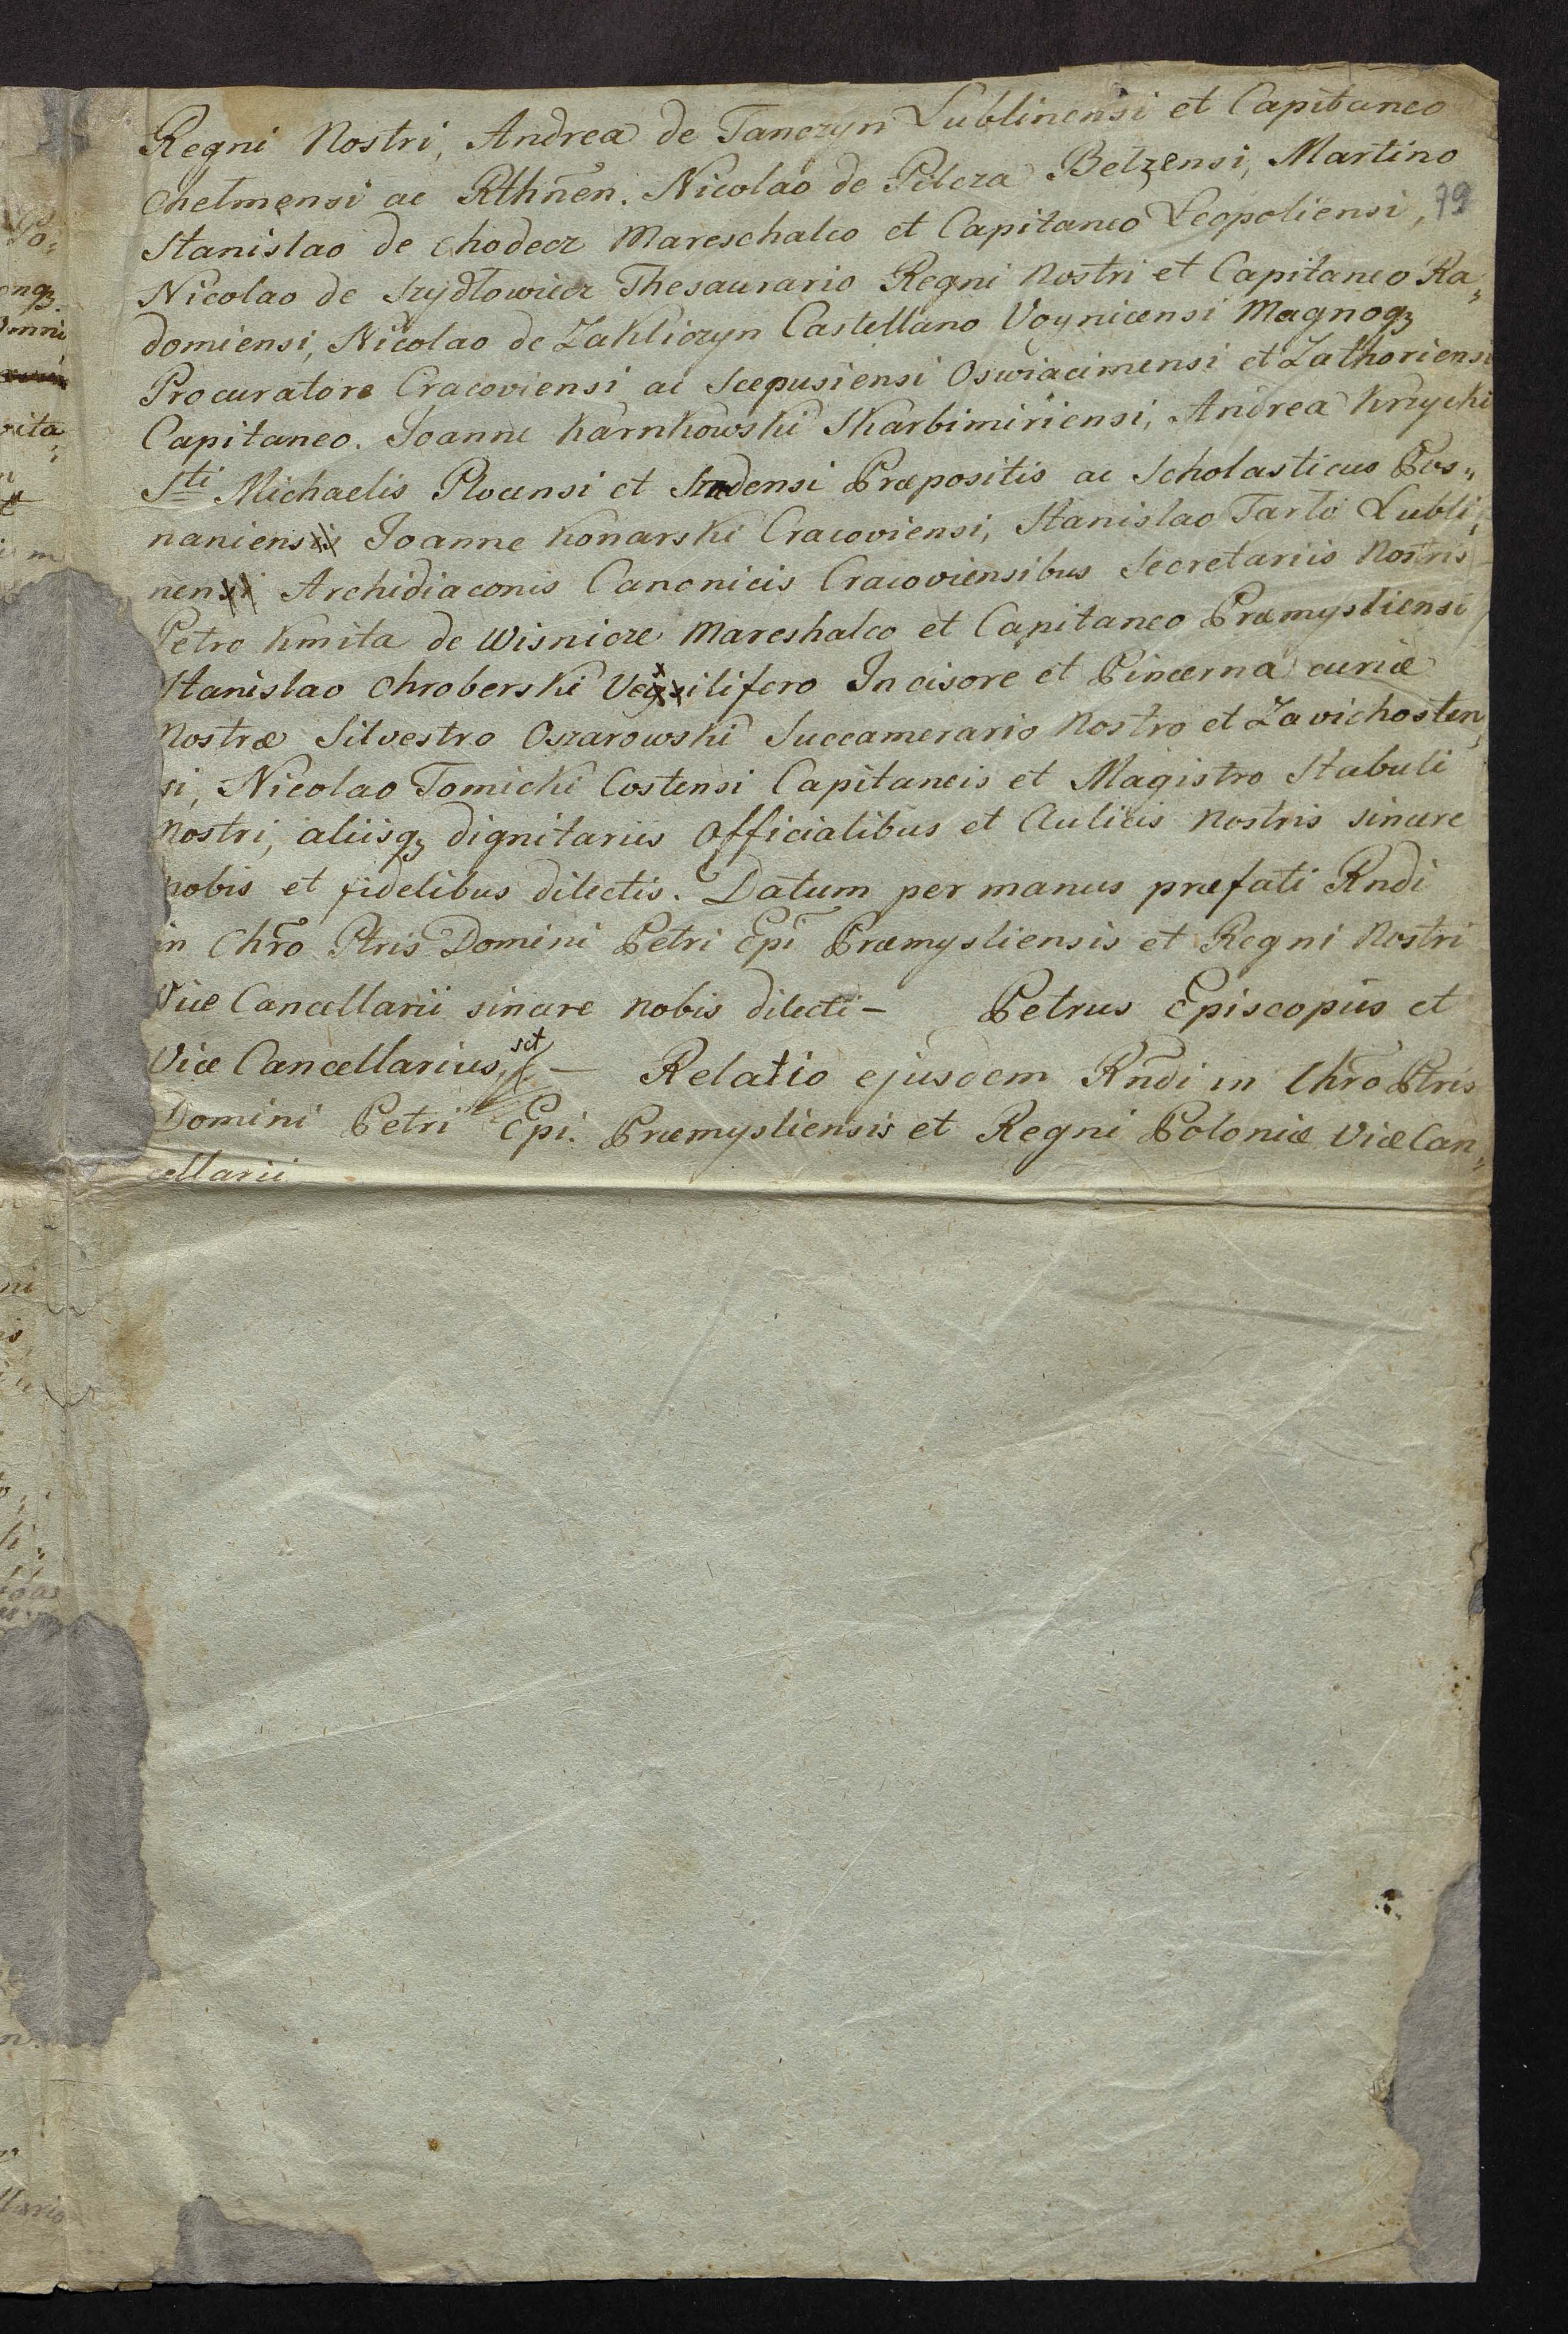 Regni Nostri, Andrea de Tanczyn Lublinensi et Capitaneo
Chelmensi ac Rthnen. Nicolao de Pilcza Belzensi, Martino
79
Stanislao de Chodecz Mareschalco et Capitaneo Leopoliensi,
Nicolao de Szydłowiecz Thesaurario Regni Nostri et Capitaneo Ra„
domiensi, Nicolao de Zakliczyn Castellano Voynicensi Magnoqz
Procuratore Cracoviensi ac Scepusiensi Oswiacimensi et Zathoriensi
Capitaneo. Joanne Karnkowski Skarbimiriensi, Andrea Krzycki
Sti Michaelis Plocensi et Szadensi Præpositis ac Scholasticus Pos„
naniensi Joanne Konarski Cracoviensi, Stanislao Tarlo Lubli„
nensi Archidiaconis Canonicis Cracoviensibus Secretariis Nostris
Petro Kmita de Wisnicze Mareshalco et Capitaneo Præmysliensi
Stanislao Chroberski Vexilifero Incisore et Pincerna curiæ
Nostræ Silvestro Oszarowski Succamerario Nostro et Zavichosten„
si, Nicolao Tomicki Costensi Capitaneis et Magistro Stabuli
Nostri, aliisqz dignitariis Officialibus et Aulicis Nostris sincere
nobis et fidelibus dilectis. Datum per manus præfati Rndi
in Chro Ptris Domini Petri Epi Præmysliensis et Regni Nostri
Vice Cancellarii sincere nobis dilecti – Petrus Episcopus et
Vice Cancellarius sct – Relatio ejusdem Rndi in Chro Ptris
Domini Petri Epi. Præmysliensis et Regni Poloniæ ViceCan„
cellarii